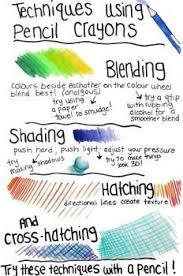 Techniques using
Pencil Crayons
Blending
Colours beside eachother on the colour wheel
blend best! (analgous)
try using
a paper
towel to smudge!
try a qtip
with rubbing
alcohol for a
smoother blend
Shading
push hard, push light: adjust your pressure
try
making shadows
try to make things
look 3D!
Hatching
directional lines create texture
And
cross-hatching
Try these techniques with a pencil!